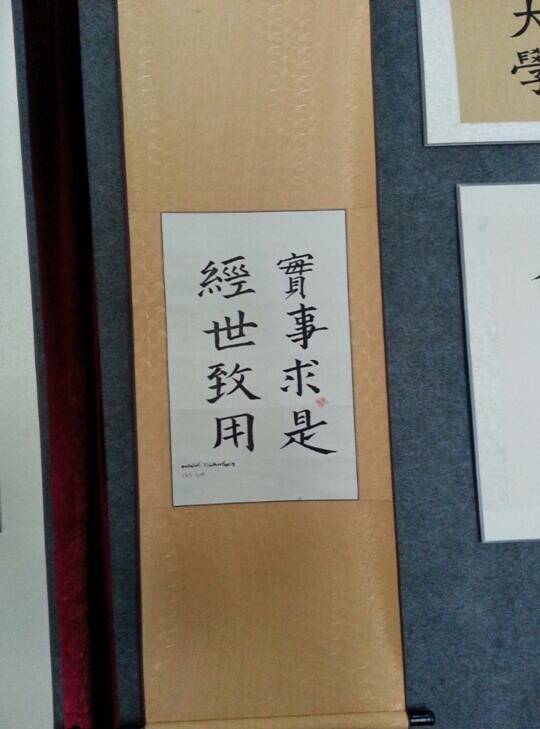 實事求是
經世致用
大學